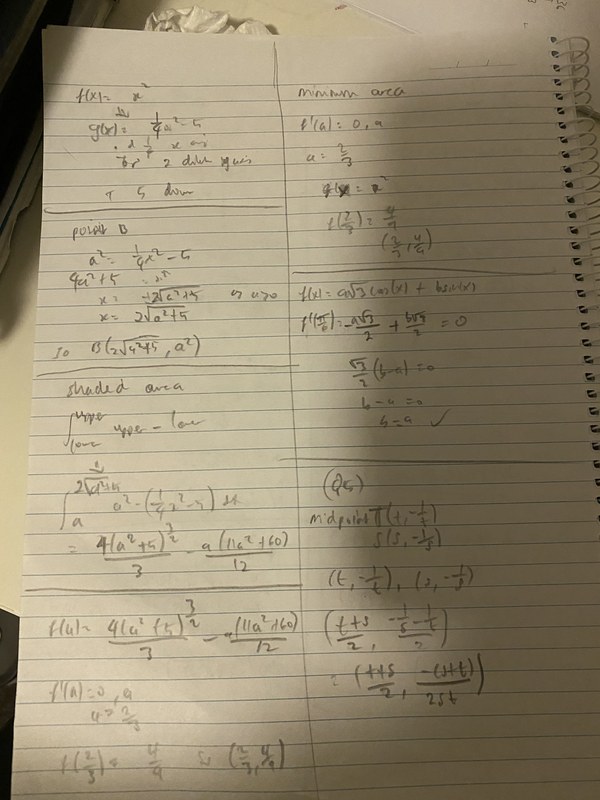 f(x) = x²
g(x) = 1/4 x² - 5
2 dilate
5 down
point B
a² = 1/4 x² - 5
4a² + 5
x = 2√a²+5 a>0
x = 2√a²+5
so B(2√a²+5, a²)
shaded area
∫ upper lower upper - lower
∫ 2√a²+5 a a² - (1/4 x² - 5) dx
= 4(a²+5)^3/2 / 3 - a(11a²+60) / 12
f(a) = 4(a²+5)^3/2 / 3 - (11a²+60) / 12
f'(a) = 0, a
a = 2/3
f(2/3) = 4/9 (2/3, 4/9)
minimum area
f'(a) = 0, a
a = 2/3
f(x) = x²
f(2/3) = 4/9
(2/3, 4/9)
f(x) = a√3 cos(x) + b sin(x)
f'(π/6) = -a√3/2 + b√3/2 = 0
√3/2 (b-a) = 0
b - a = 0
b = a ✓
(Q5)
midpoint T(t, -1/t)
S(s, -1/s)
(t, -1/t), (s, -1/s)
(t+s / 2, -1/s - 1/t / 2)
= (t+s / 2, -(s+t) / 2st)